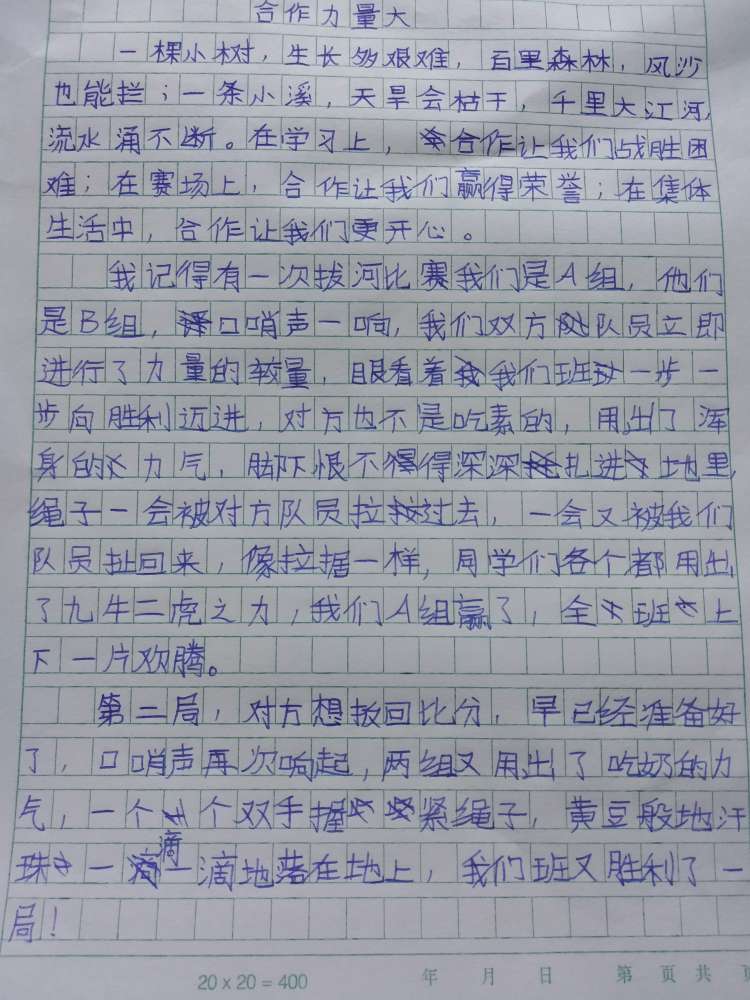 合作力量大
一棵小树，生长多艰难，百里森林，风沙
也能拦；一条小溪，天旱会枯干，千里大江河，
流水涌不断。在学习上，合作让我们战胜困
难；在赛场上，合作让我们赢得荣誉；在集体
生活中，合作让我们更开心。
我记得有一次拔河比赛我们是A组，他们
是B组，口哨声一响，我们双方队员立即
进行了力量的较量，眼看着我们班一步一
步向胜利迈进，对方也不是吃素的，用出了浑
身的力气，脚下恨不得深深扎进地里，
绳子一会被对方队员拉过去，一会又被我们
队员扯回来，像拉据一样，同学们各个都用出
了九牛二虎之力，我们A组赢了，全班上
下一片欢腾。
第二局，对方想扳回比分，早已经准备好
了，口哨声再次响起，两组又用出了吃奶的力
气，一个个双手握紧绳子，黄豆般地汗
珠一滴一滴地落在地上，我们班又胜利了一
局！
20×20=400 年 月 日 第 页 共 页